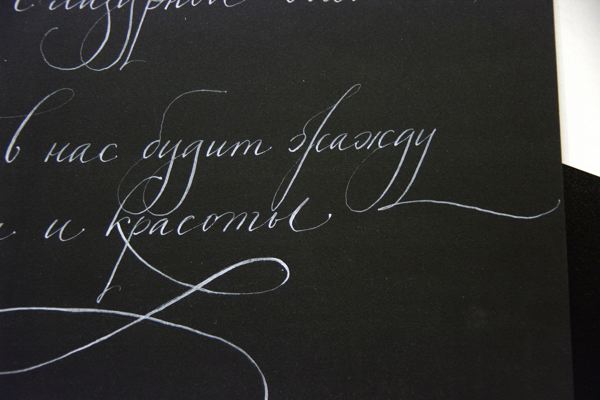 с лазурной
в нас будит жажду
и и красоты